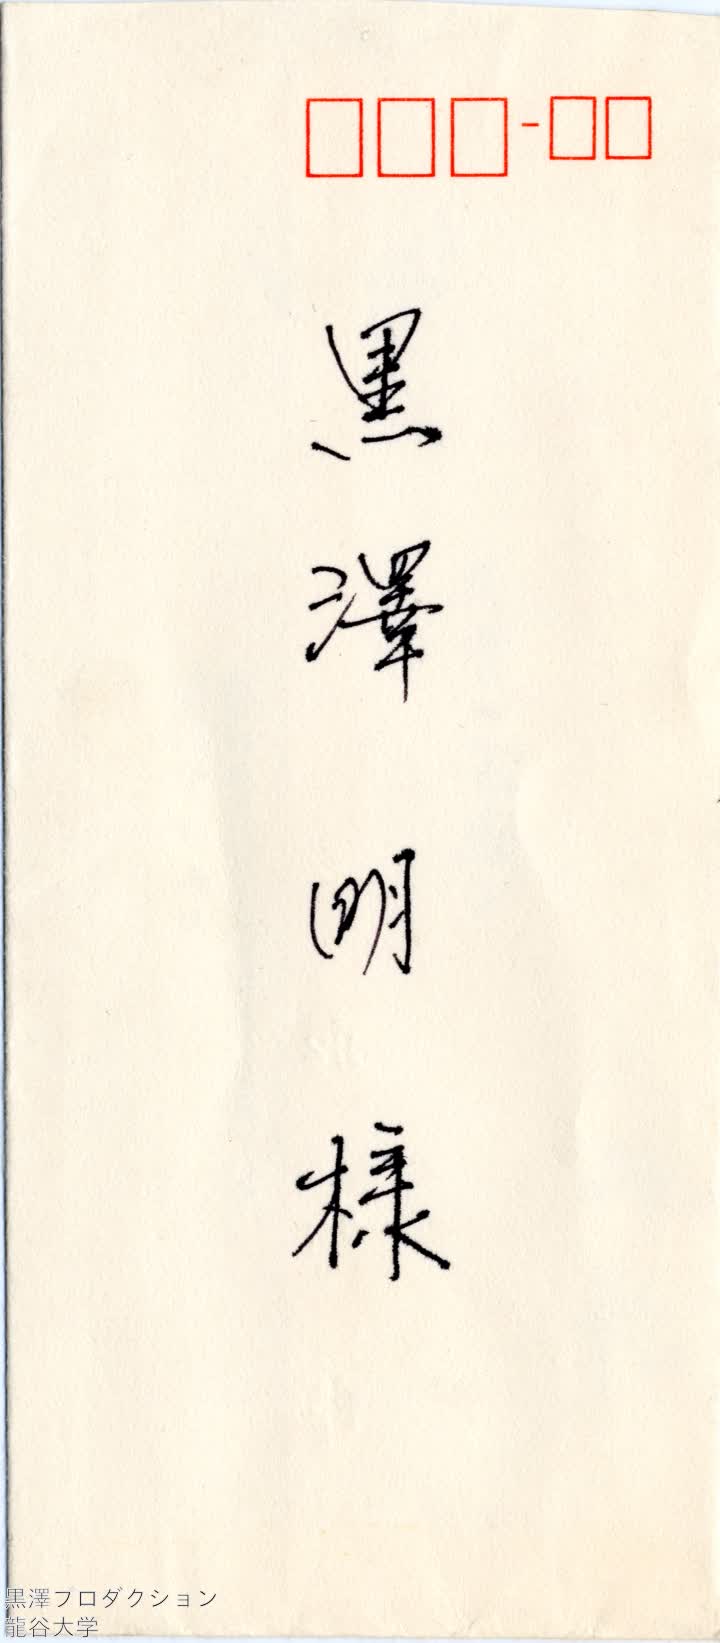 黒澤明様
黒澤プロダクション
龍谷大学